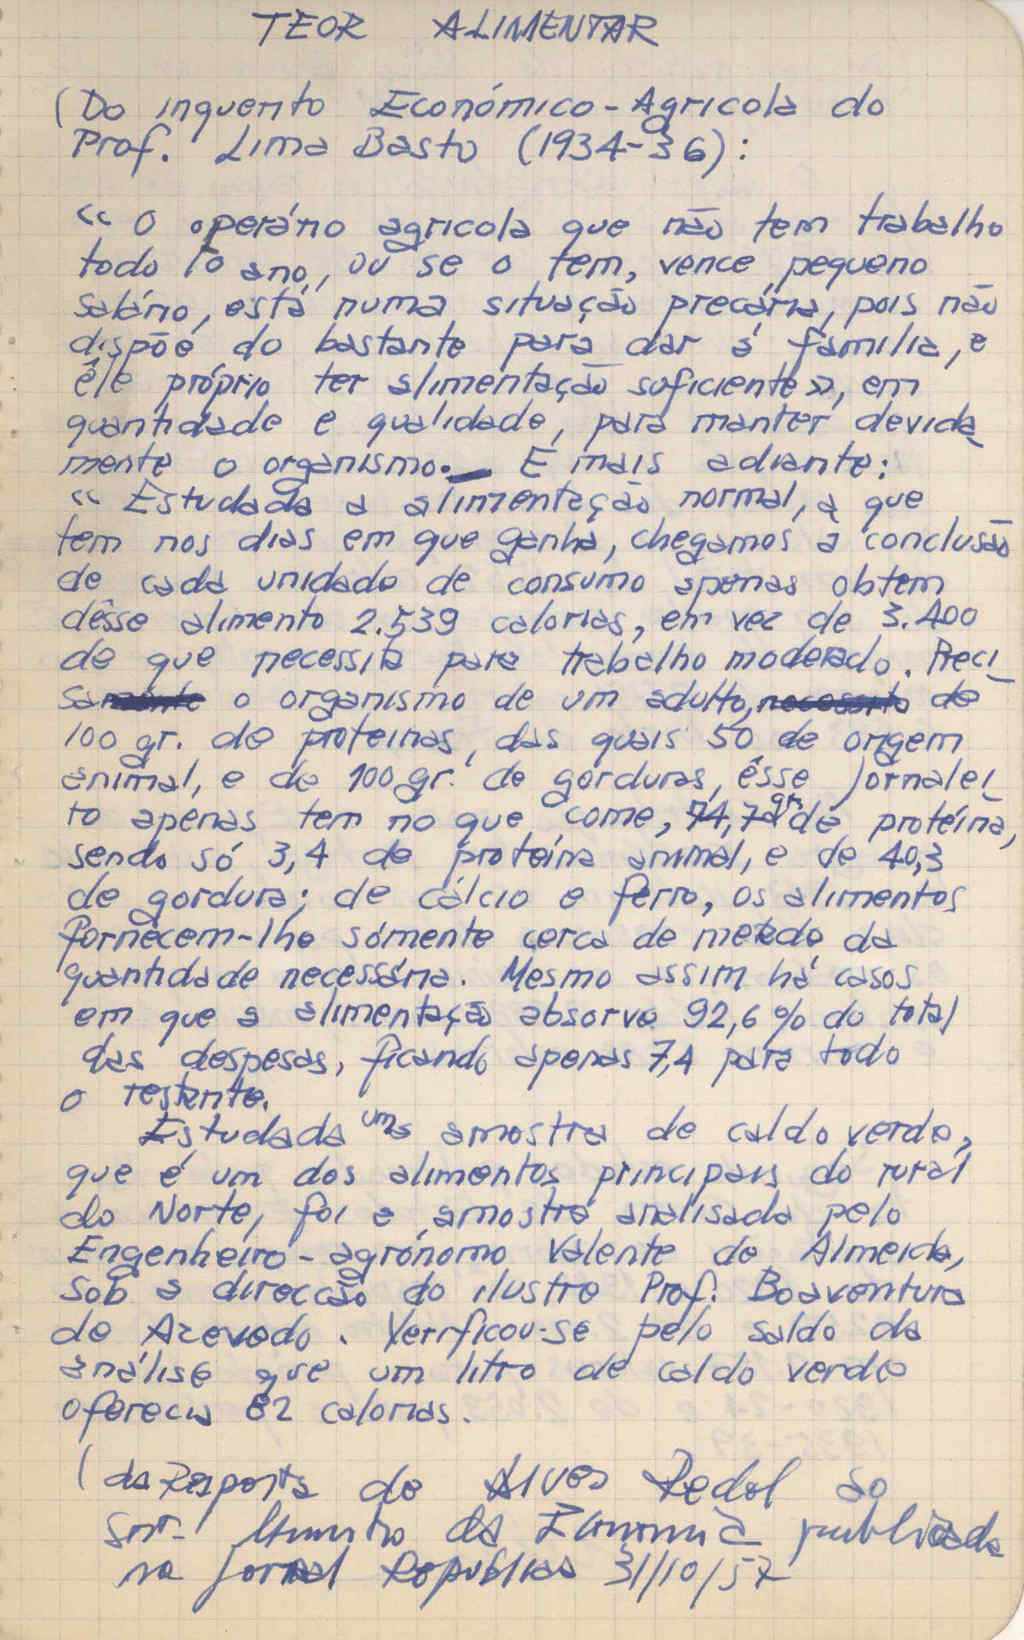 TEOR ALIMENTAR
(Do inquerito Económico-Agricola do
Prof. Lima Basto (1934-36):
"O operário agricola que não tem trabalho
todo o ano, ou se o tem, vence pequeno
salário, está numa situação precária, pois não
dispõe do bastante para dar á familia, e
êle próprio ter alimentação suficiente», em
quantidade e qualidade, para manter devida
mente o organismo. _ E mais adiante:
"Estudada a alimentação normal, a que
tem nos dias em que ganha, chegamos a conclusão
de cada unidade de consumo apenas obtem
dêsse alimento 2.539 calorias, em vez de 3.400
de que necessita para trabalho moderado. Preci_
sa o organismo de um adulto, de
100 gr. de proteinas, das quais 50 de origem
animal, e de 100 gr. de gorduras, êsse jornalei_
ro apenas tem no que come, 74,7 gr. de proteína,
sendo só 3,4 de proteína animal, e de 40,3
de gordura; de cálcio e ferro, os alimentos
fornecem-lhe sómente cerca de metade da
quantidade necessária. Mesmo assim há casos
em que a alimentação absorve 92,6% do total
das despesas, ficando apenas 7,4 para todo
o restante.
Estudada uma amostra de caldo verde,
que é um dos alimentos principais do rural
do Norte, foi a amostra analisada pelo
Engenheiro-agrónomo Valente de Almeida,
sob a direcção do ilustre Prof. Boaventura
de Azevedo. Verificou-se pelo saldo da
análise que um litro de caldo verde
oferecia 82 calorias.
(da Resposta de Alves Redol ao
Snr. Ministro da Economia publicada
no jornal Republica 31/10/57